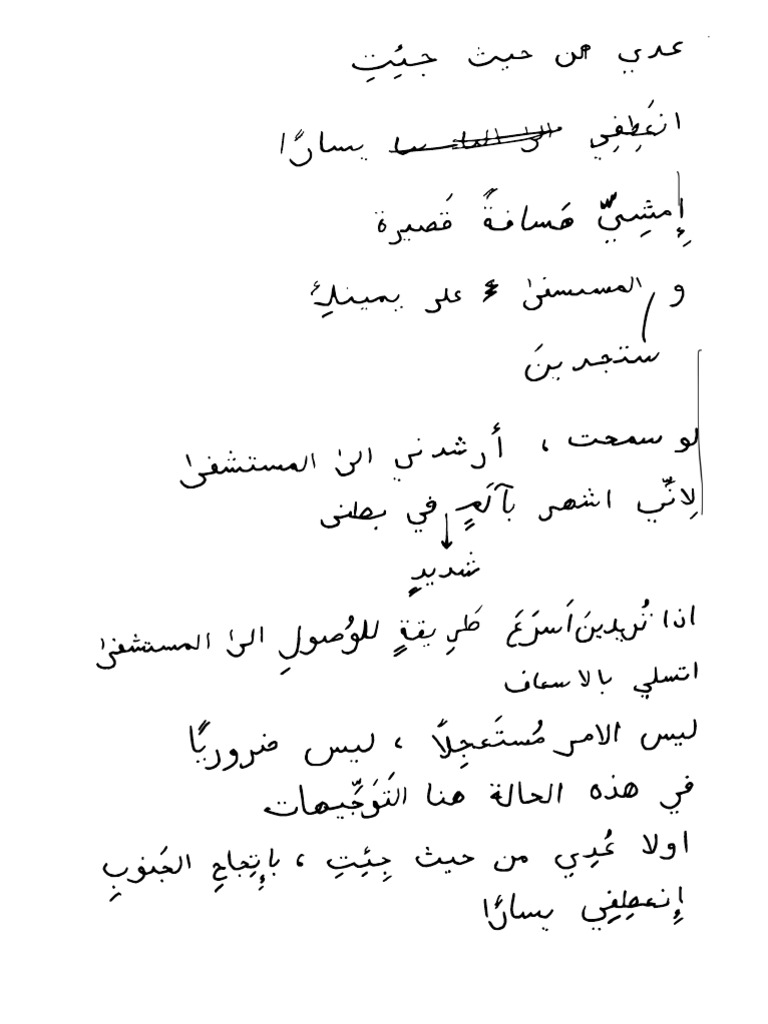 عدي من حيث جئتِ
انعَطِفِي يسارًا
إِمشِيّ مَسافةً قَصيرة
و المستسفىٰ على يمينكِ
ستجدينَ
لو سمحت ، أرشدني الىٰ المستشفىٰ
لِانِّي اشهر بآلَمٍ في بطنى
شديدٍ
اذا تُريدينَ اَسرَعَ طَرِيقةٍ للوُصولِ الىٰ المستشفىٰ
اتسلي بالاسعاف
ليس الامر مُستَعجِلًا ، ليس ضروريًا
في هذه الحالة هنا التَوَجِّيهات
اولا عُدِي من حيث جِئتِ ، بإِتِجاحِ الجَنوبِ
إِنعطِفِي يسارًا